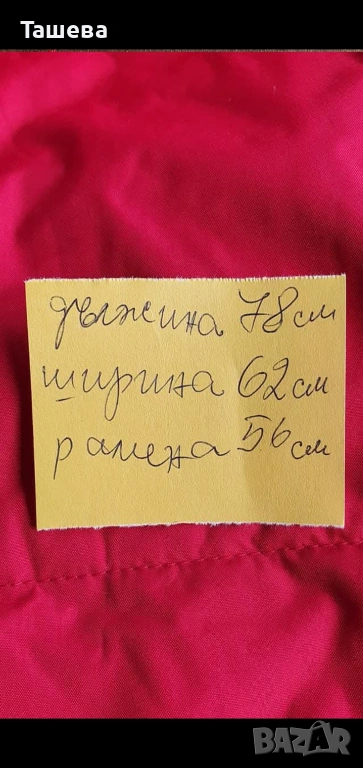 Ташева
дължина 78 см
ширина 62 см
рамена 56 см
BAZAR